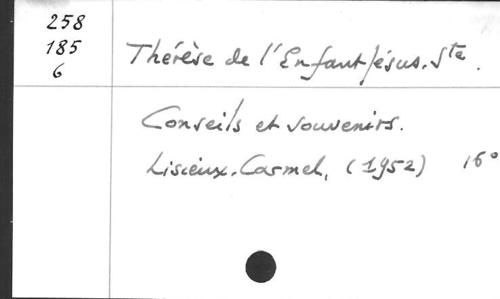 258
185
6
Thérèse de l'Enfant Jésus. Ste.
Conseils et souvenirs.
Lisieux. Carmel, (1952) 16°